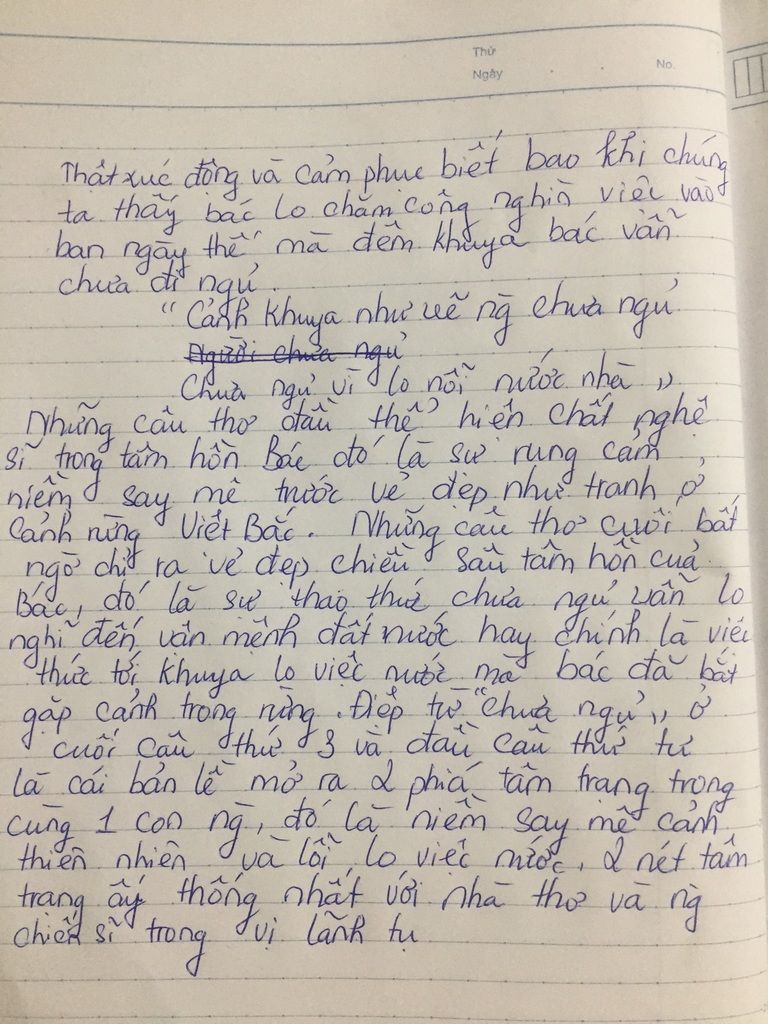 Thứ
Ngày
No.
Thật xúc động và cảm phục biết bao khi chúng
ta thấy bác lo chăm công nghìn việc vào
ban ngày thế mà đêm khuya bác vẫn
chưa đi ngủ.
"Cảnh khuya như vẽ ng̀ chưa ngủ
Người chưa ngủ
Chưa ngủ vì lo nỗi nước nhà"
Những câu thơ đầu thể hiện chất nghệ
sĩ trong tâm hồn Bác đó là sự rung cảm,
niềm say mê trước vẻ đẹp như tranh ở
Cảnh rừng Việt Bắc. Những câu thơ cuối bất
ngờ chỉ ra vẻ đẹp chiều sâu tâm hồn của
Bác, đó là sự thao thức chưa ngủ vẫn lo
nghĩ đến vận mệnh đất nước hay chính là việc
thức tới khuya lo việc nước mà bác đã bắt
gặp cảnh trong rừng. Điệp từ "chưa ngủ" ở
cuối câu thứ 3 và đầu câu thứ tư
là cái bản lề mở ra 2 phía tâm trạng trong
cùng 1 con ng̀, đó là niềm say mê cảnh
thiên nhiên và lỗi lo việc nước, 2 nét tâm
trạng ấy thống nhất với nhà thơ và ng̀
chiến sĩ trong vị lãnh tụ